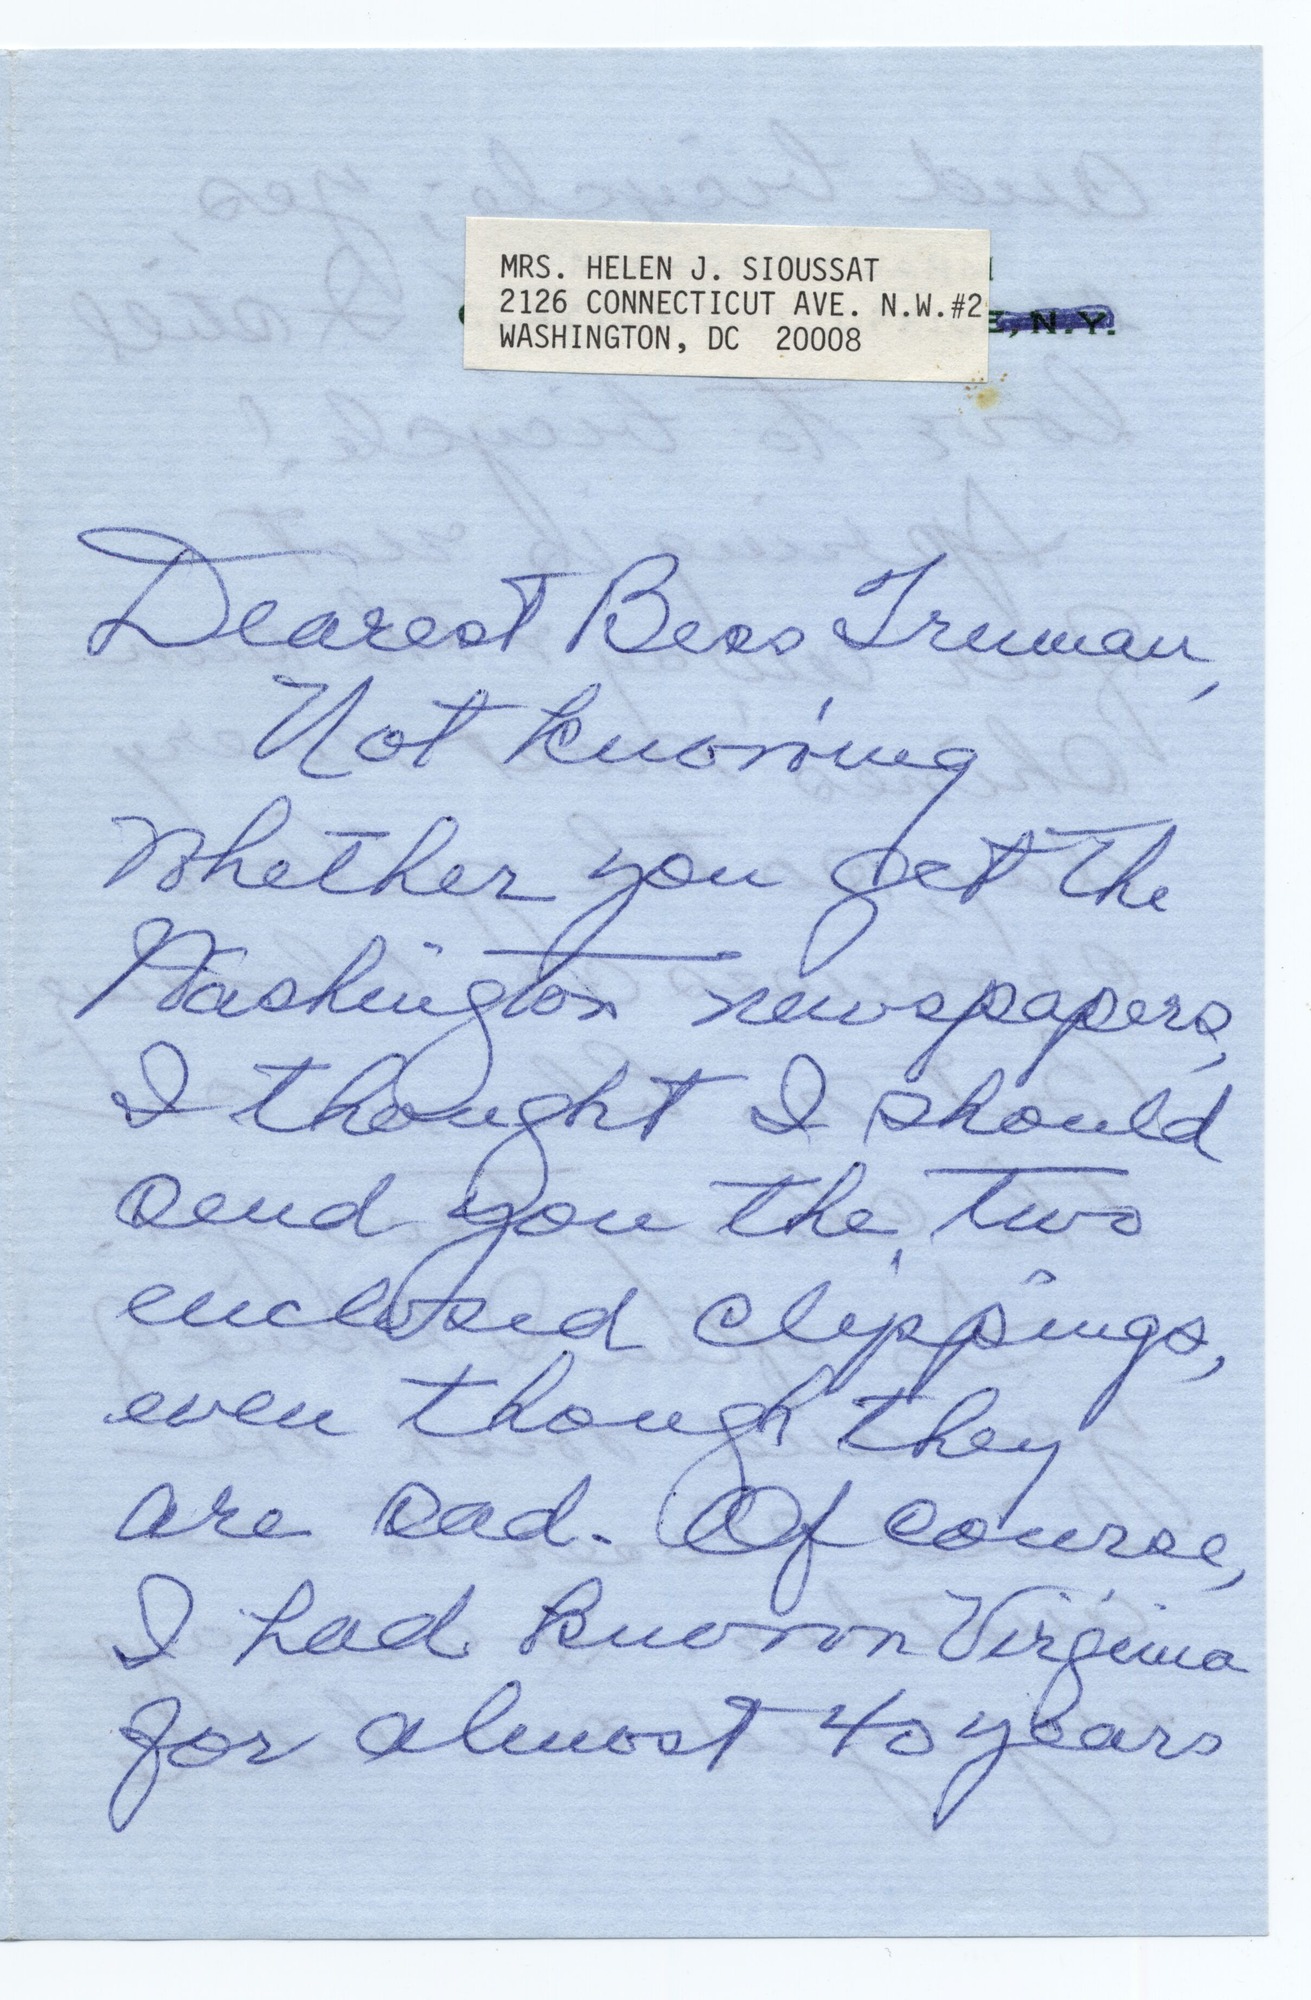 MRS. HELEN J. SIOUSSAT
2126 CONNECTICUT AVE. N.W.#2
WASHINGTON, DC 20008
E, N.Y.
Dearest Bess Truman,
Not knowing
whether you get the
Washington newspapers,
I thought I should
send you the two
enclosed clippings,
even though they
are sad. Of course,
I had known Virginia
for almost 40 years